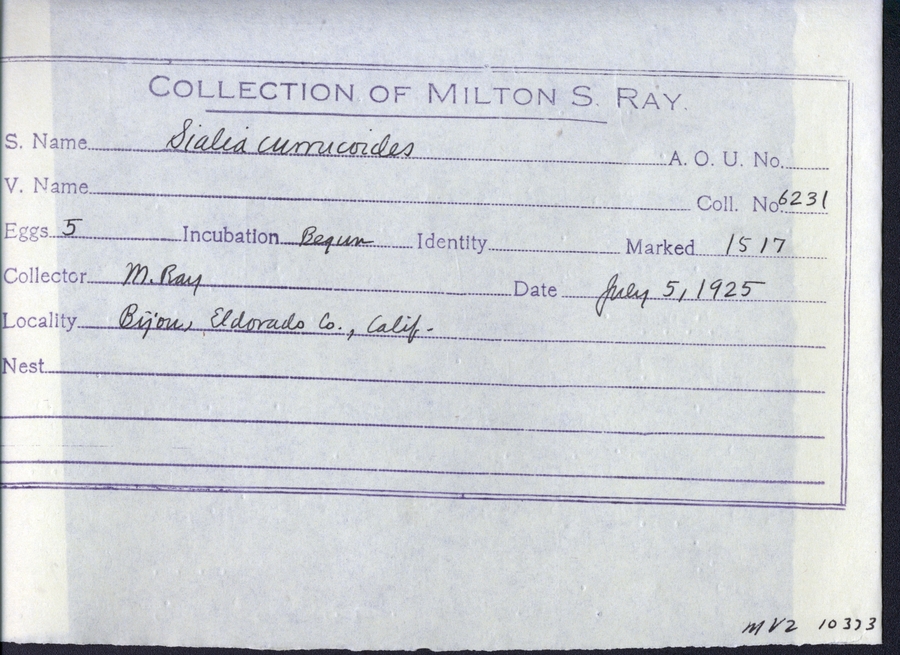 COLLECTION OF MILTON S. RAY.
S. Name Sialia currucoides A. O. U. No.
V. Name Coll. No. 6231
Eggs 5 Incubation Begun Identity Marked 1517
Collector M. Ray Date July 5, 1925
Locality Bijou, Eldorado Co., Calif.
Nest
MVZ 10373